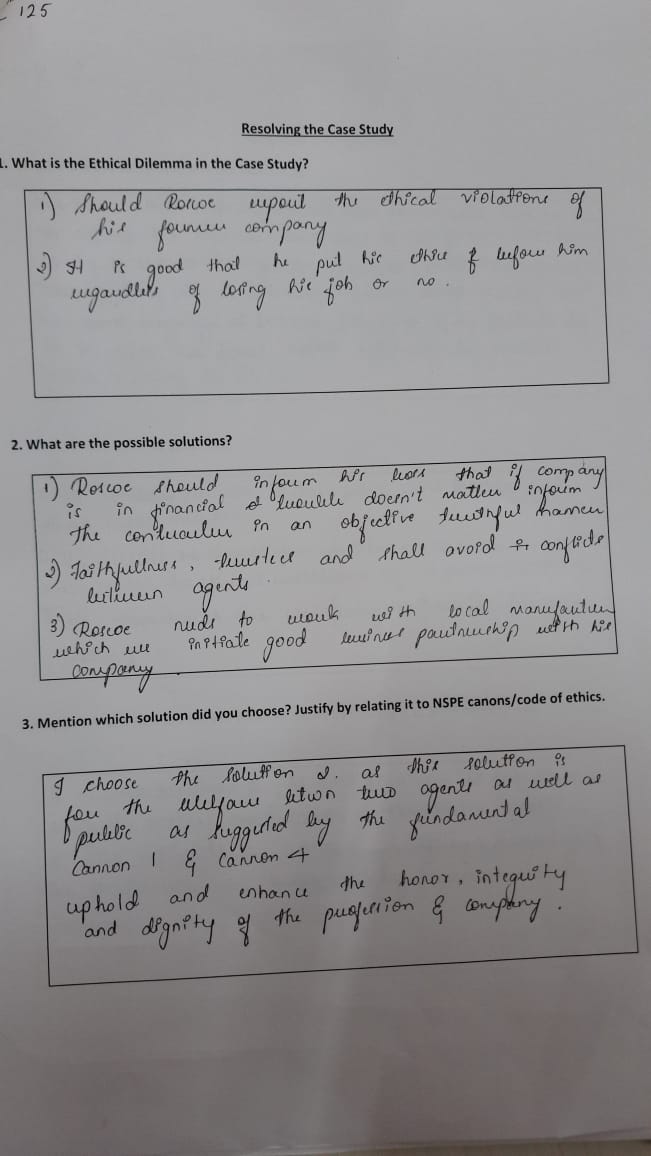 125
Resolving the Case Study
1. What is the Ethical Dilemma in the Case Study?
1) Should Roscoe report the ethical violations of
his former company
2) It is good that he put his ethics before him
regardless of losing his job or no.
2. What are the possible solutions?
1) Roscoe should inform his boss that if company
is in financial trouble doesn't matter inform
the contractor in an objective truthful manner
2) Faithfullness, trustees and shall avoid conflicts
between agents
3) Roscoe needs to work with local manufacturer
which we initiate good business partnership with his
company
3. Mention which solution did you choose? Justify by relating it to NSPE canons/code of ethics.
I choose the solution 2. as this solution is
for the welfare betwn two agents as well as
public as suggested by the fundamental
Cannon 1 & Cannon 4
uphold and enhance the honor, integrity
and dignity of the profession & company.